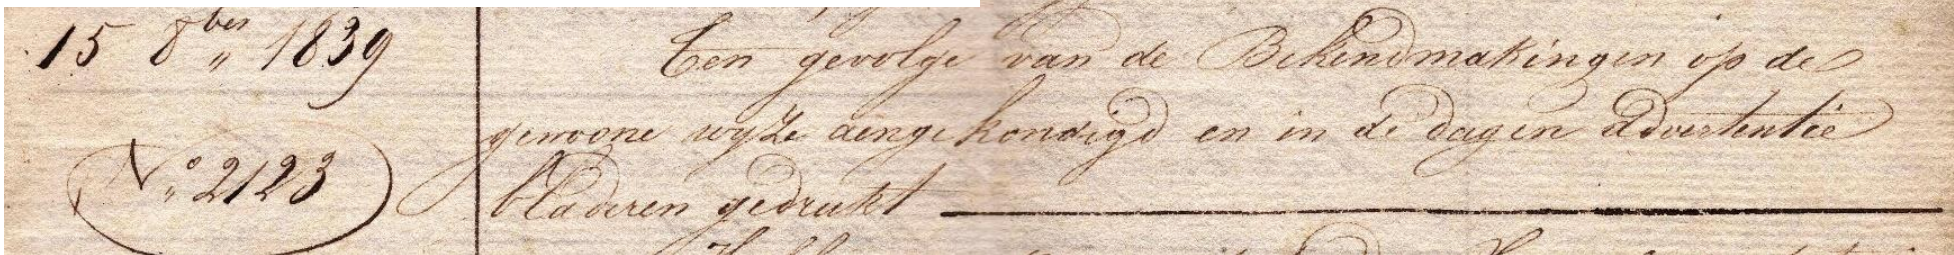 15 8ber 1839
Nº 2123
Ten gevolge van de Bekendmakingen op de
gewoone wyze aengekondigd en in de dag en advertentie
bladeren gedrukt